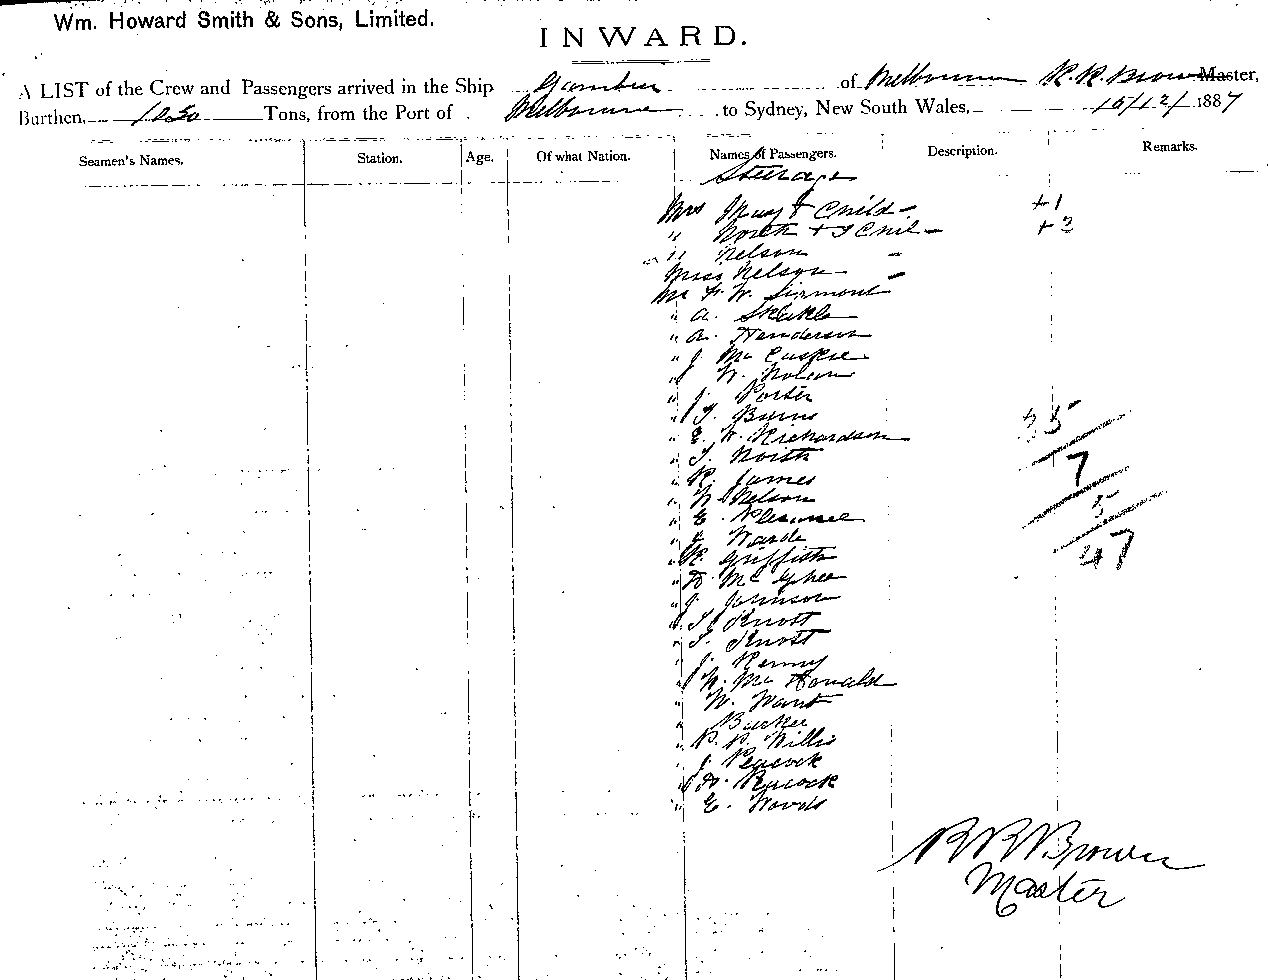 Wm. Howard Smith & Sons, Limited.
INWARD.
A LIST of the Crew and Passengers arrived in the Ship Gambier of Melbourne R. R. Brown Master,
Burthen, Tons, from the Port of Melbourne to Sydney, New South Wales, 1887
Seamen's Names. Station. Age. Of what Nation. Names of Passengers. Description. Remarks.
Steerage
Mrs & Child - +1
" North + Chil -
" Nelson -
Miss Nelson -
Mr W.
" A.
" A. Henderson
" J. Mc Caskie
" W. Nolan
" J. Porter
" T. Burns
" E. W. Richardson
" T. North
" R. James
" W. Nelson
" E. Pleasance
" Warde
" R. Griffith
" D. Mc Ghee
" J. Johnson
" T. Knott
" T. Knott
" J. Kenny
" W. Mc Donald
" W. Want
" Barker
" P. P. Willis
" J. Peacock
" W. Peacock
" E. Woods
35
7
5
47
R R Brown
Master